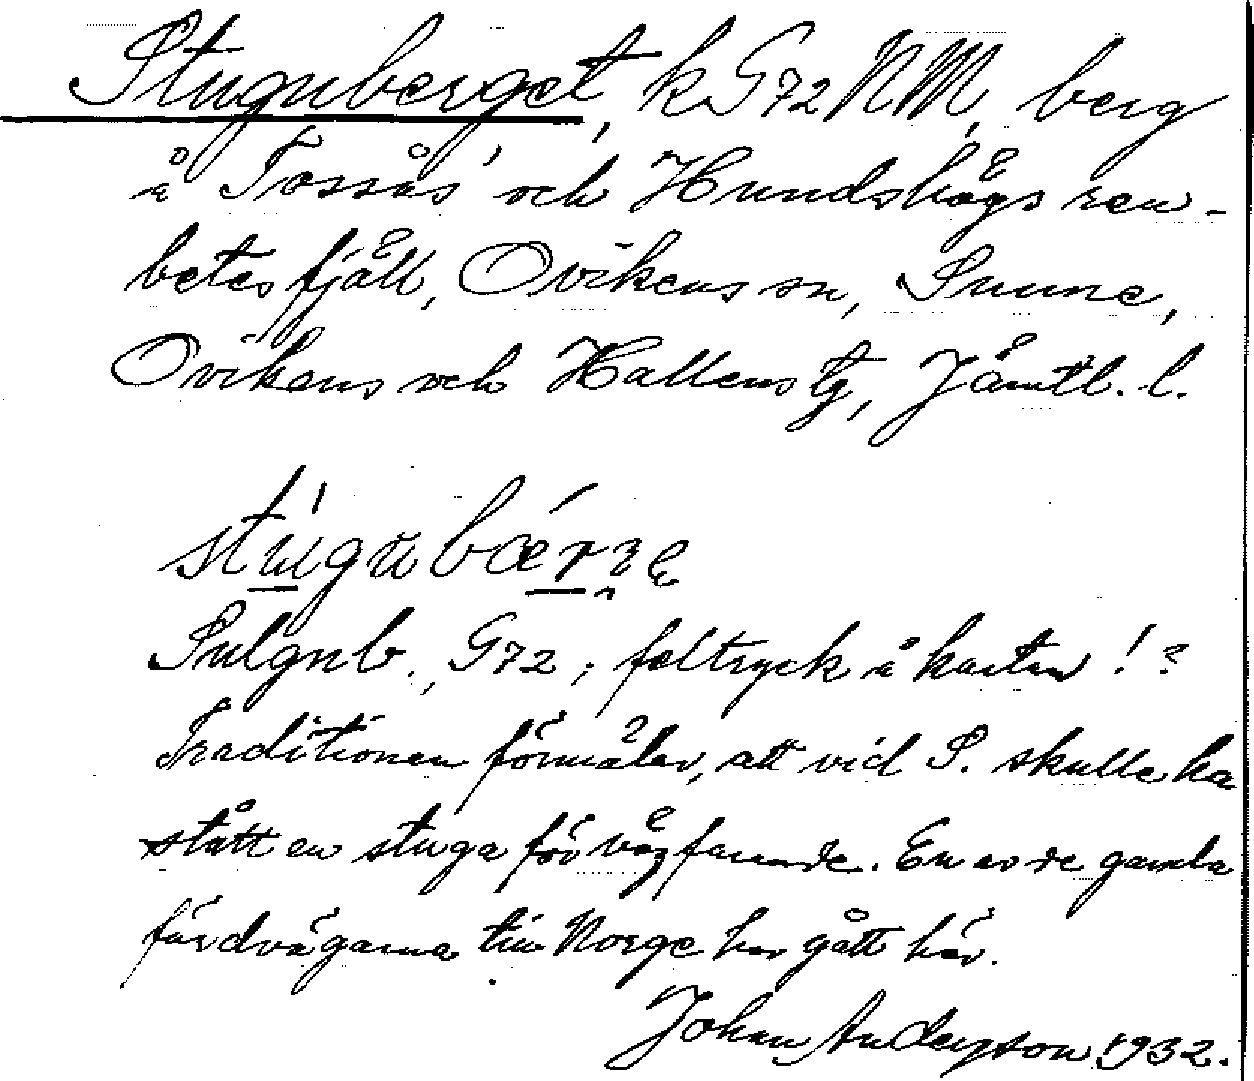 Stuguberget, k G72 NM, berg
å Tossås' och Hundshögs ren-
betesfjäll, Ovikens sn, Sunne,
Ovikens och Hallens tg, Jämtl. l.
Sulgub., G72; feltryck å kartan!?
Traditionen förmäler, att vid S. skulle ha
stått en stuga för vägfarande. En av de gamla
färdvägarna till Norge har gått här.
Johan Anderson 1932.